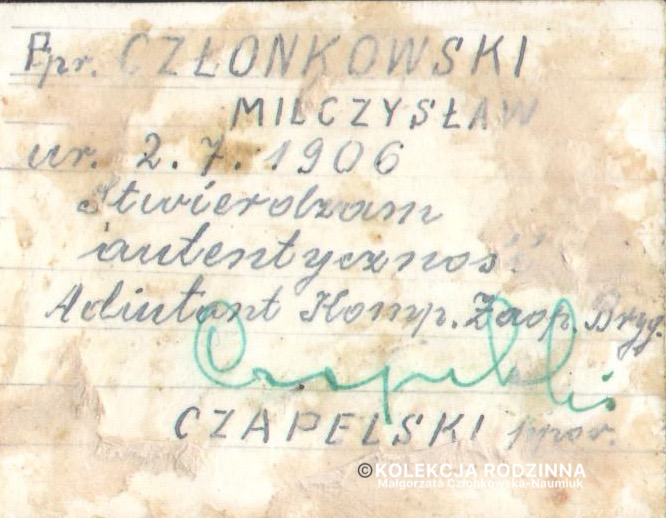 Ppr. CZŁONKOWSKI
MILCZYSŁAW
ur. 2.7.1906
Stwierdzam
autentyczność
Adiutant Komp. Zaop. Bryg.
Czapelski
CZAPELSKI ppor.
©KOLEKCJA RODZINNA
Małgorzata Członkowska-Naumiuk